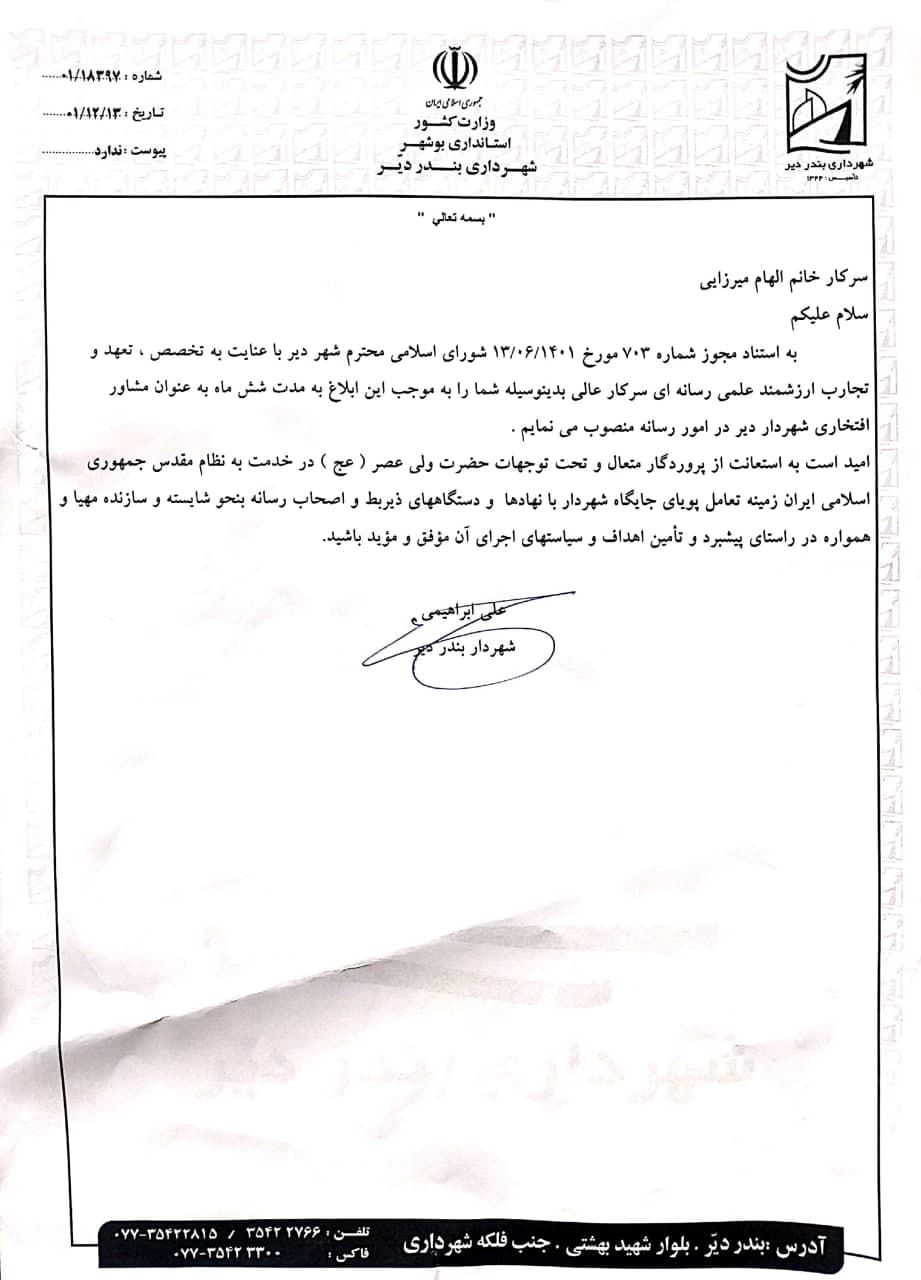 شماره : ۰۱/۱۸۳۹۷......
تاریخ : ۰۱/۱۲/۱۳.......
پیوست :ندارد...............
جمهوری اسلامی ایران
وزارت کشور
استانداری بوشهر
شهرداری بندر دیّر
شهرداری بندر دیر
تأسیس : ۱۳۴۴
" بسمه تعالي "
سرکار خانم الهام میرزایی
سلام علیکم
به استناد مجوز شماره ۷۰۳ مورخ ۱۳/۰۶/۱۴۰۱ شورای اسلامی محترم شهر دیر با عنایت به تخصص ، تعهد و
تجارب ارزشمند علمی رسانه ای سرکار عالی بدینوسیله شما را به موجب این ابلاغ به مدت شش ماه به عنوان مشاور
افتخاری شهردار دیر در امور رسانه منصوب می نمایم .
امید است به استعانت از پروردگار متعال و تحت توجهات حضرت ولی عصر ( عج ) در خدمت به نظام مقدس جمهوری
اسلامی ایران زمینه تعامل پویای جایگاه شهردار با نهادها و دستگاههای ذیربط و اصحاب رسانه بنحو شایسته و سازنده مهیا و
همواره در راستای پیشبرد و تأمین اهداف و سیاستهای اجرای آن مؤفق و مؤید باشید.
علی ابراهیمی
شهردار بندر دیر
شهرداری بندر دیر
آدرس :بندر دیّر . بلوار شهید بهشتی . جنب فلکه شهرداری
تلفن : ۳۵۴۲ ۲۷۶۶ / ۰۷۷-۳۵۴۲۲۸۱۵
فاکس : ۰۷۷-۳۵۴۲ ۳۳۰۰